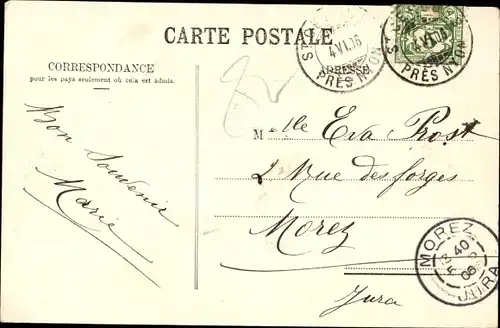 CARTE POSTALE
CORRESPONDANCE
pour les pays seulement où cela est admis.
ADRESSE
PRÈS NYON
4.VI.06
PRÈS NYON
Bon Souvenir
Marie
Mlle Eva Prost
2 Rue des forges
Morez
Jura
MOREZ
JURA